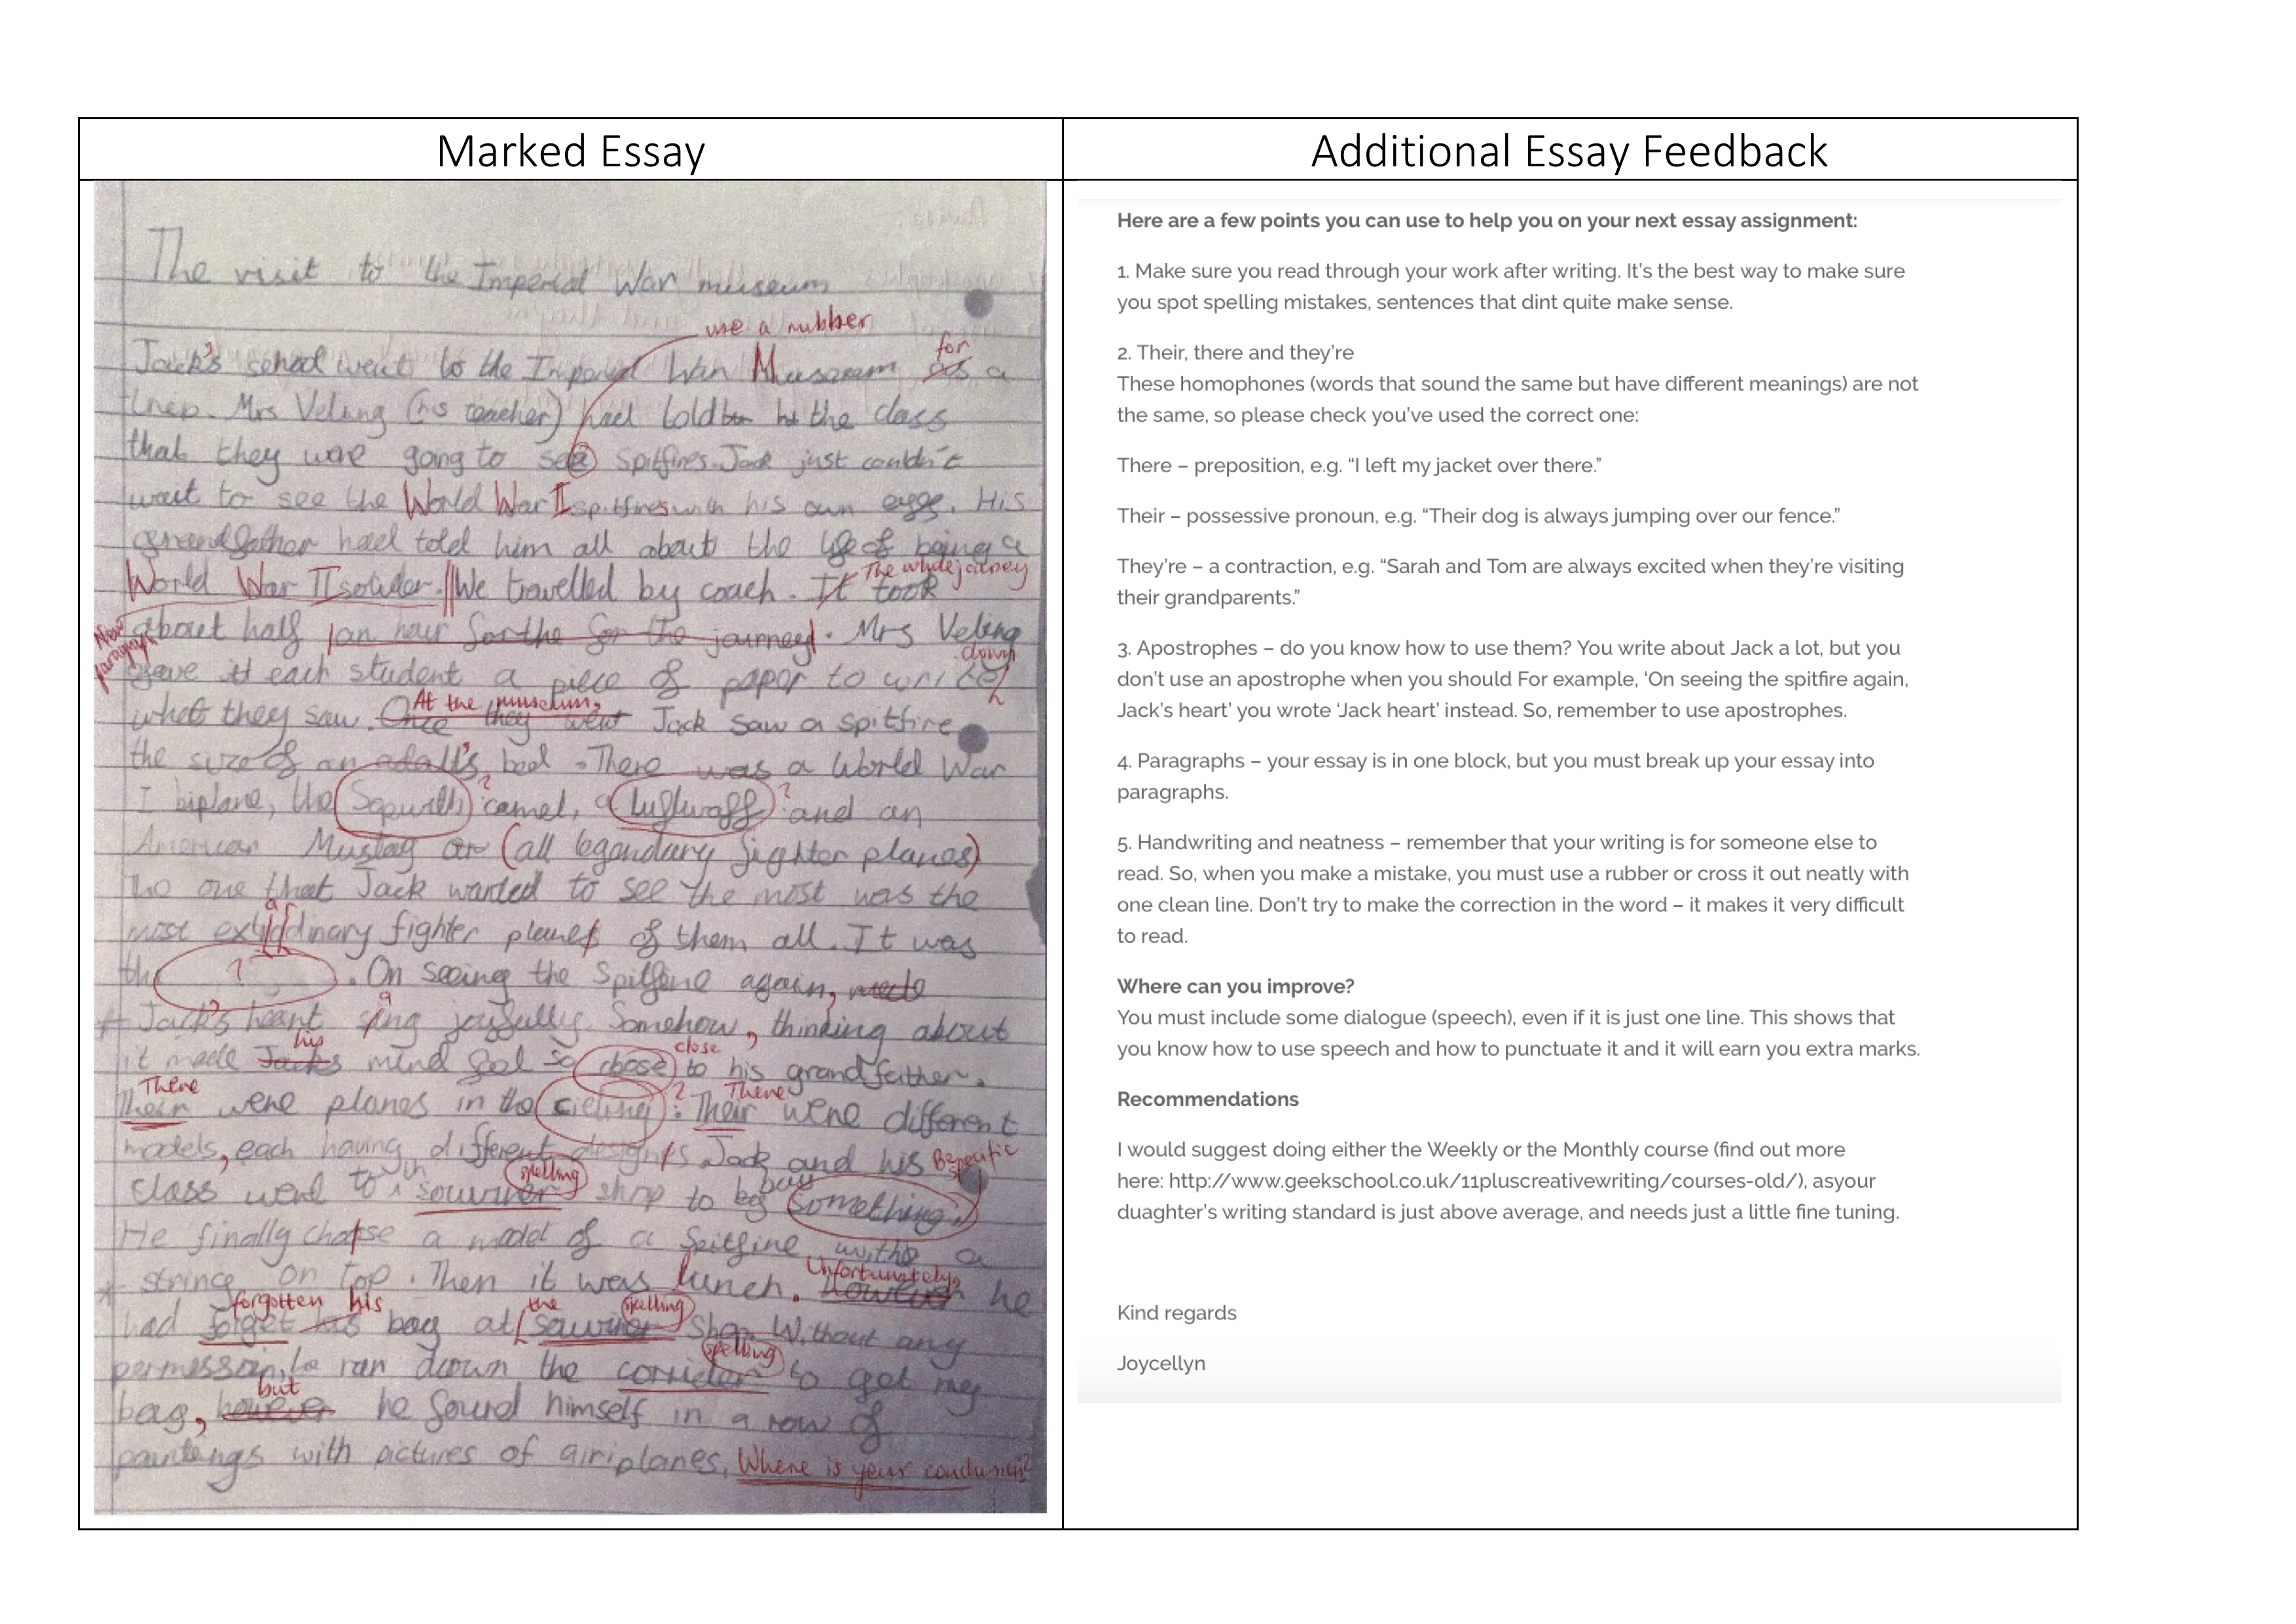 Marked Essay
The visit to the Imperial War museum
use a rubber
for
Jack's school went to the Imperial War Museum as a
trep. Mrs Veling (his teacher) had told the class
that they were going to see spitfires. Jack just couldn't
wait to see the World War II spitfires with his own eyes. His
grandfather had told him all about the life of being a
The whole journey
World War II solider. || We travelled by coach. It took
New paragraph
about half an hour for the for the journey. Mrs Veling
down
gave it each student a piece of paper to write
At the museum,
what they saw. Once they went Jack saw a spitfire
the size of an adult's bed. There was a World War
I biplane, the Sopwith ? camel, a Lufwaff ? and an
American Mustag or (all legendary fighter planes)
The one that Jack wanted to see the most was the
most fighter planes of them all. It was
the ? . On seeing the Spitfire again, made
Jack's heart sing joyfully. Somehow, thinking about
his close
it made Jacks mind feel so chose to his grandfather.
There ? There
Their were planes in the cieling. Their were different
models, each having different designs. Jack and his
Be specific
spelling
class went to shop to buy something.
He finally chose a model of a Spitfire with a
Unfortunately,
string on top. Then it was lunch. however he
forgotten his the spelling
had forget his bag at shop. Without any
spelling
permission, he ran down the corrider to get my
but
bag, however he found himself in a row of
paintings with pictures of airiplanes. Where is your conclusion?
Additional Essay Feedback
Here are a few points you can use to help you on your next essay assignment:
1. Make sure you read through your work after writing. It's the best way to make sure
you spot spelling mistakes, sentences that dint quite make sense.
2. Their, there and they're
These homophones (words that sound the same but have different meanings) are not
the same, so please check you've used the correct one:
There – preposition, e.g. “I left my jacket over there.”
Their – possessive pronoun, e.g. “Their dog is always jumping over our fence.”
They're – a contraction, e.g. “Sarah and Tom are always excited when they're visiting
their grandparents.”
3. Apostrophes – do you know how to use them? You write about Jack a lot, but you
don't use an apostrophe when you should For example, ‘On seeing the spitfire again,
Jack's heart’ you wrote ‘Jack heart’ instead. So, remember to use apostrophes.
4. Paragraphs – your essay is in one block, but you must break up your essay into
paragraphs.
5. Handwriting and neatness – remember that your writing is for someone else to
read. So, when you make a mistake, you must use a rubber or cross it out neatly with
one clean line. Don't try to make the correction in the word – it makes it very difficult
to read.
Where can you improve?
You must include some dialogue (speech), even if it is just one line. This shows that
you know how to use speech and how to punctuate it and it will earn you extra marks.
Recommendations
I would suggest doing either the Weekly or the Monthly course (find out more
here: http://www.geekschool.co.uk/11pluscreativewriting/courses-old/), asyour
duaghter's writing standard is just above average, and needs just a little fine tuning.
Kind regards
Joycellyn